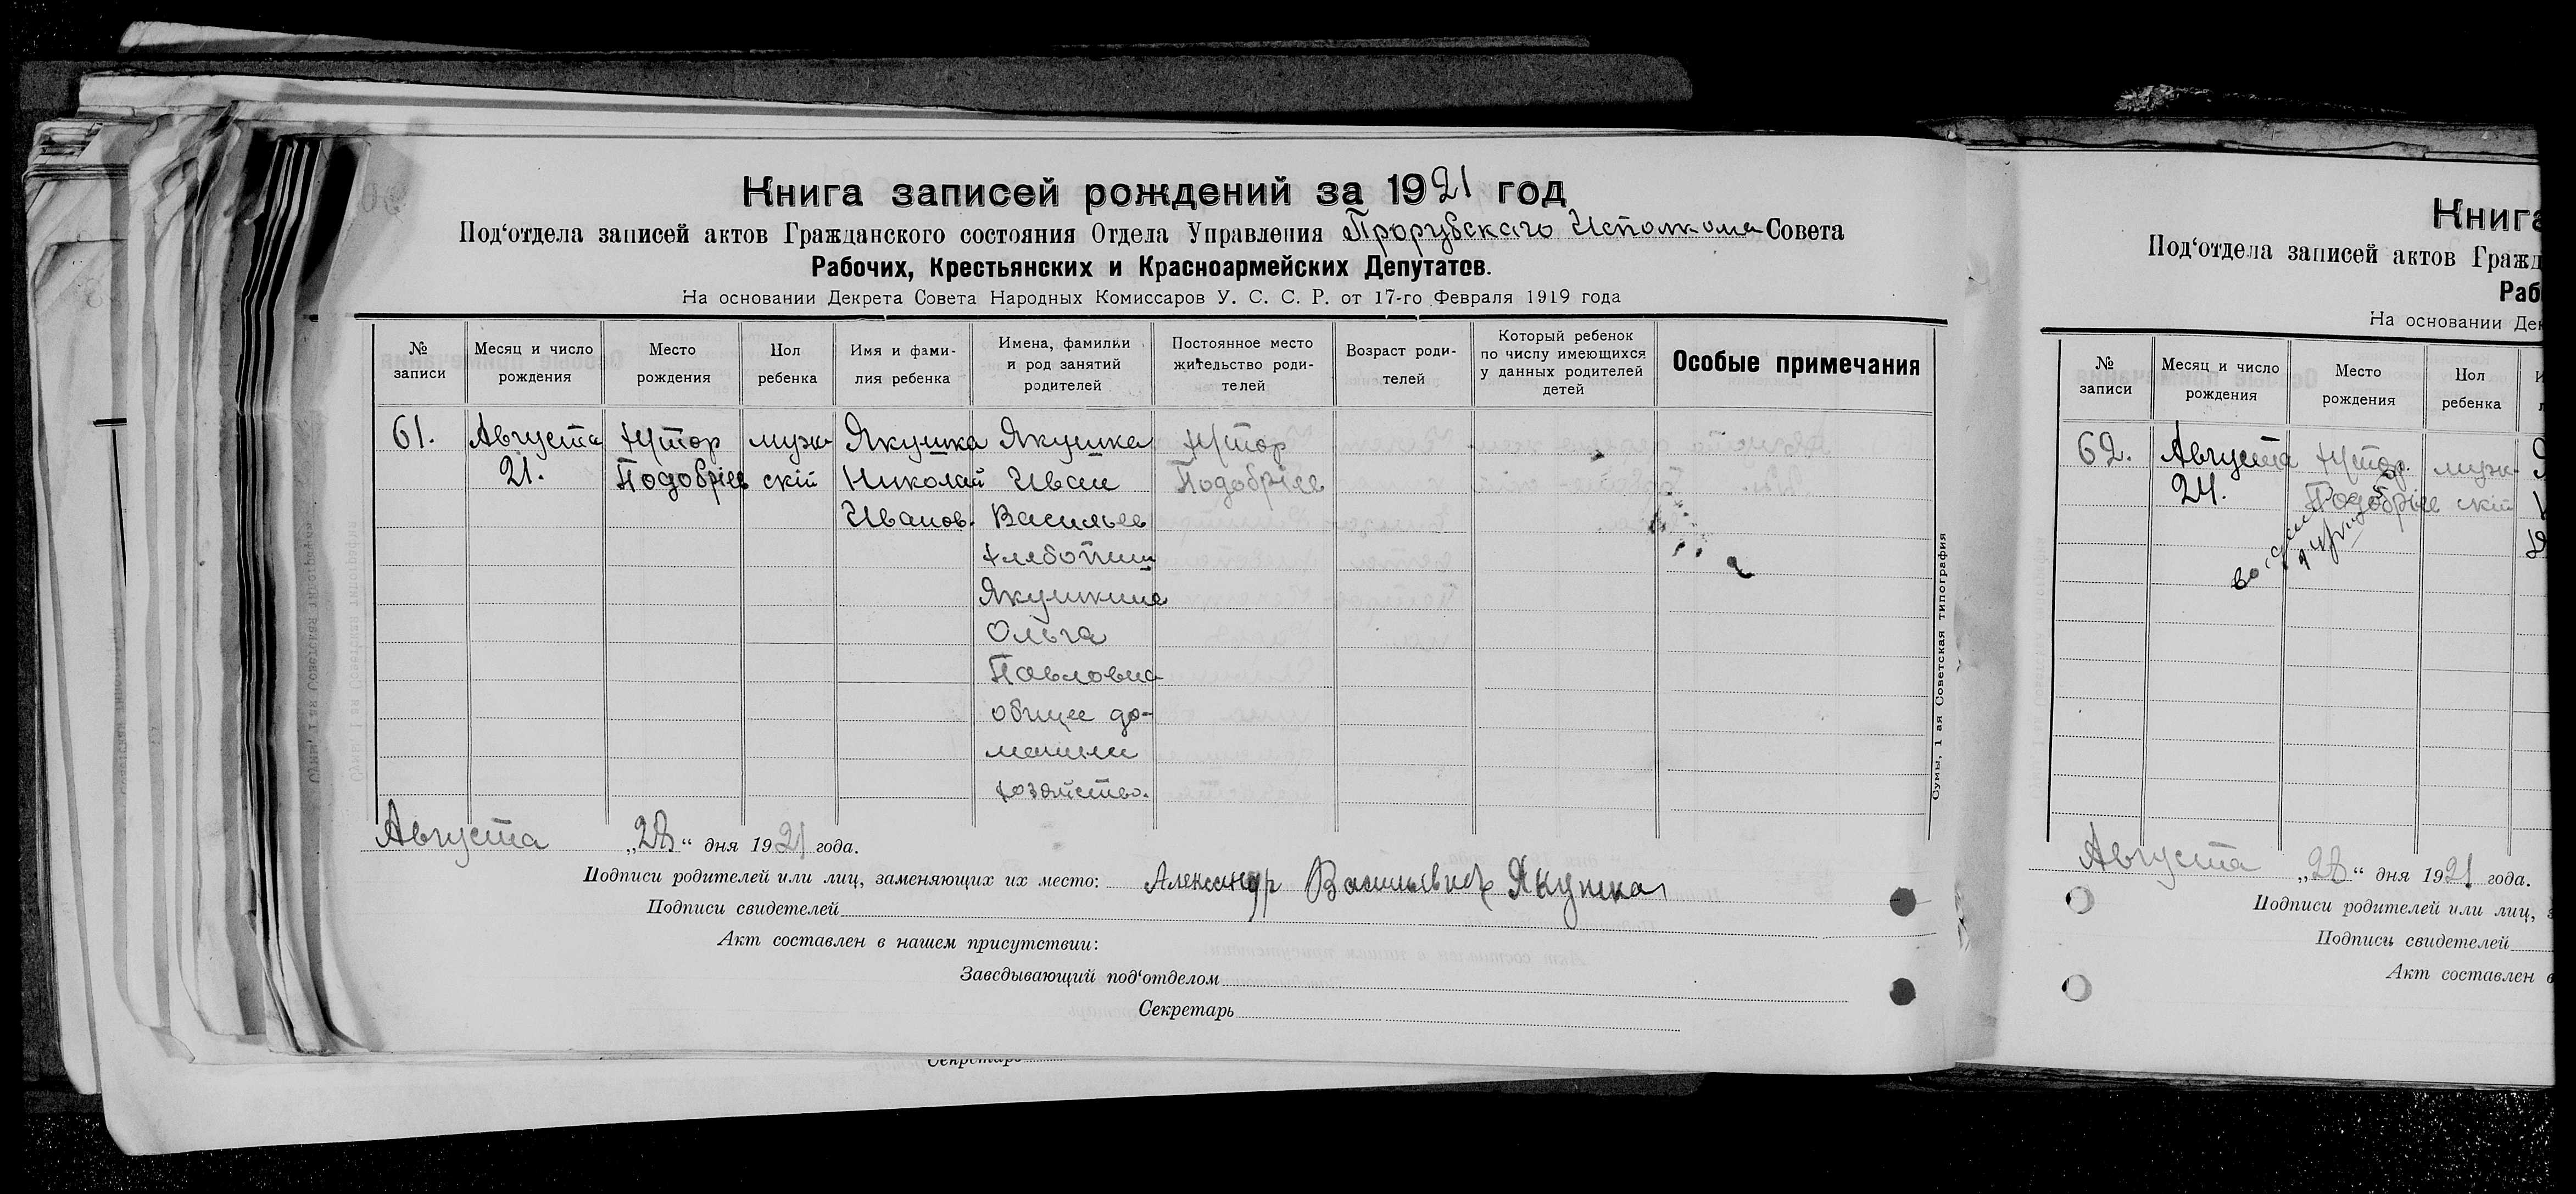 Книга записей рождений за 1921 год
Под‘отдела записей актов Гражданского состояния Отдела Управления Прорубскаго Исполкома Совета
Рабочих, Крестьянских и Красноармейских Депутатов.
На основании Декрета Совета Народных Комиссаров У. С. С. Р. от 17-го Февраля 1919 года
№ записи
Месяц и число рождения
Место рождения
Пол ребенка
Имя и фами-
лия ребенка
Имена, фамилии
и род занятий
родителей
Постоянное место
жительство роди-
телей
Возраст роди-
телей
Который ребенок
по числу имеющихся
у данных родителей
детей
Особые примечания
61.
Августа
21.
Хутор
Подобріев
муж-
скій
Якушка
Николай
Иванов.
Якушка
Иван
Васильев
хлебопаш
Якушкина
Ольга
Павловна
общее до-
машнее
хозяйство.
Хутор
Подобріев
Сумы, 1 ая Советская типография
Августа „28“ дня 1921 года.
Подписи родителей или лиц, заменяющих их место: Александр Васильевич Якушка
Подписи свидетелей
Акт составлен в нашем присутствии:
Заведывающий под‘отделом
Секретарь
Секретарь
Книга
Под‘отдела записей актов Гражд
Раб
На основании Дек
№ записи
Месяц и число
рождения
Место
рождения
Пол
ребенка
62.
Августа
24.
Хутор
Подобріев
муж-
скій
Августа „28“ дня 1921 года.
Подписи родителей или лиц, з
Подписи свидетелей
Акт составлен в